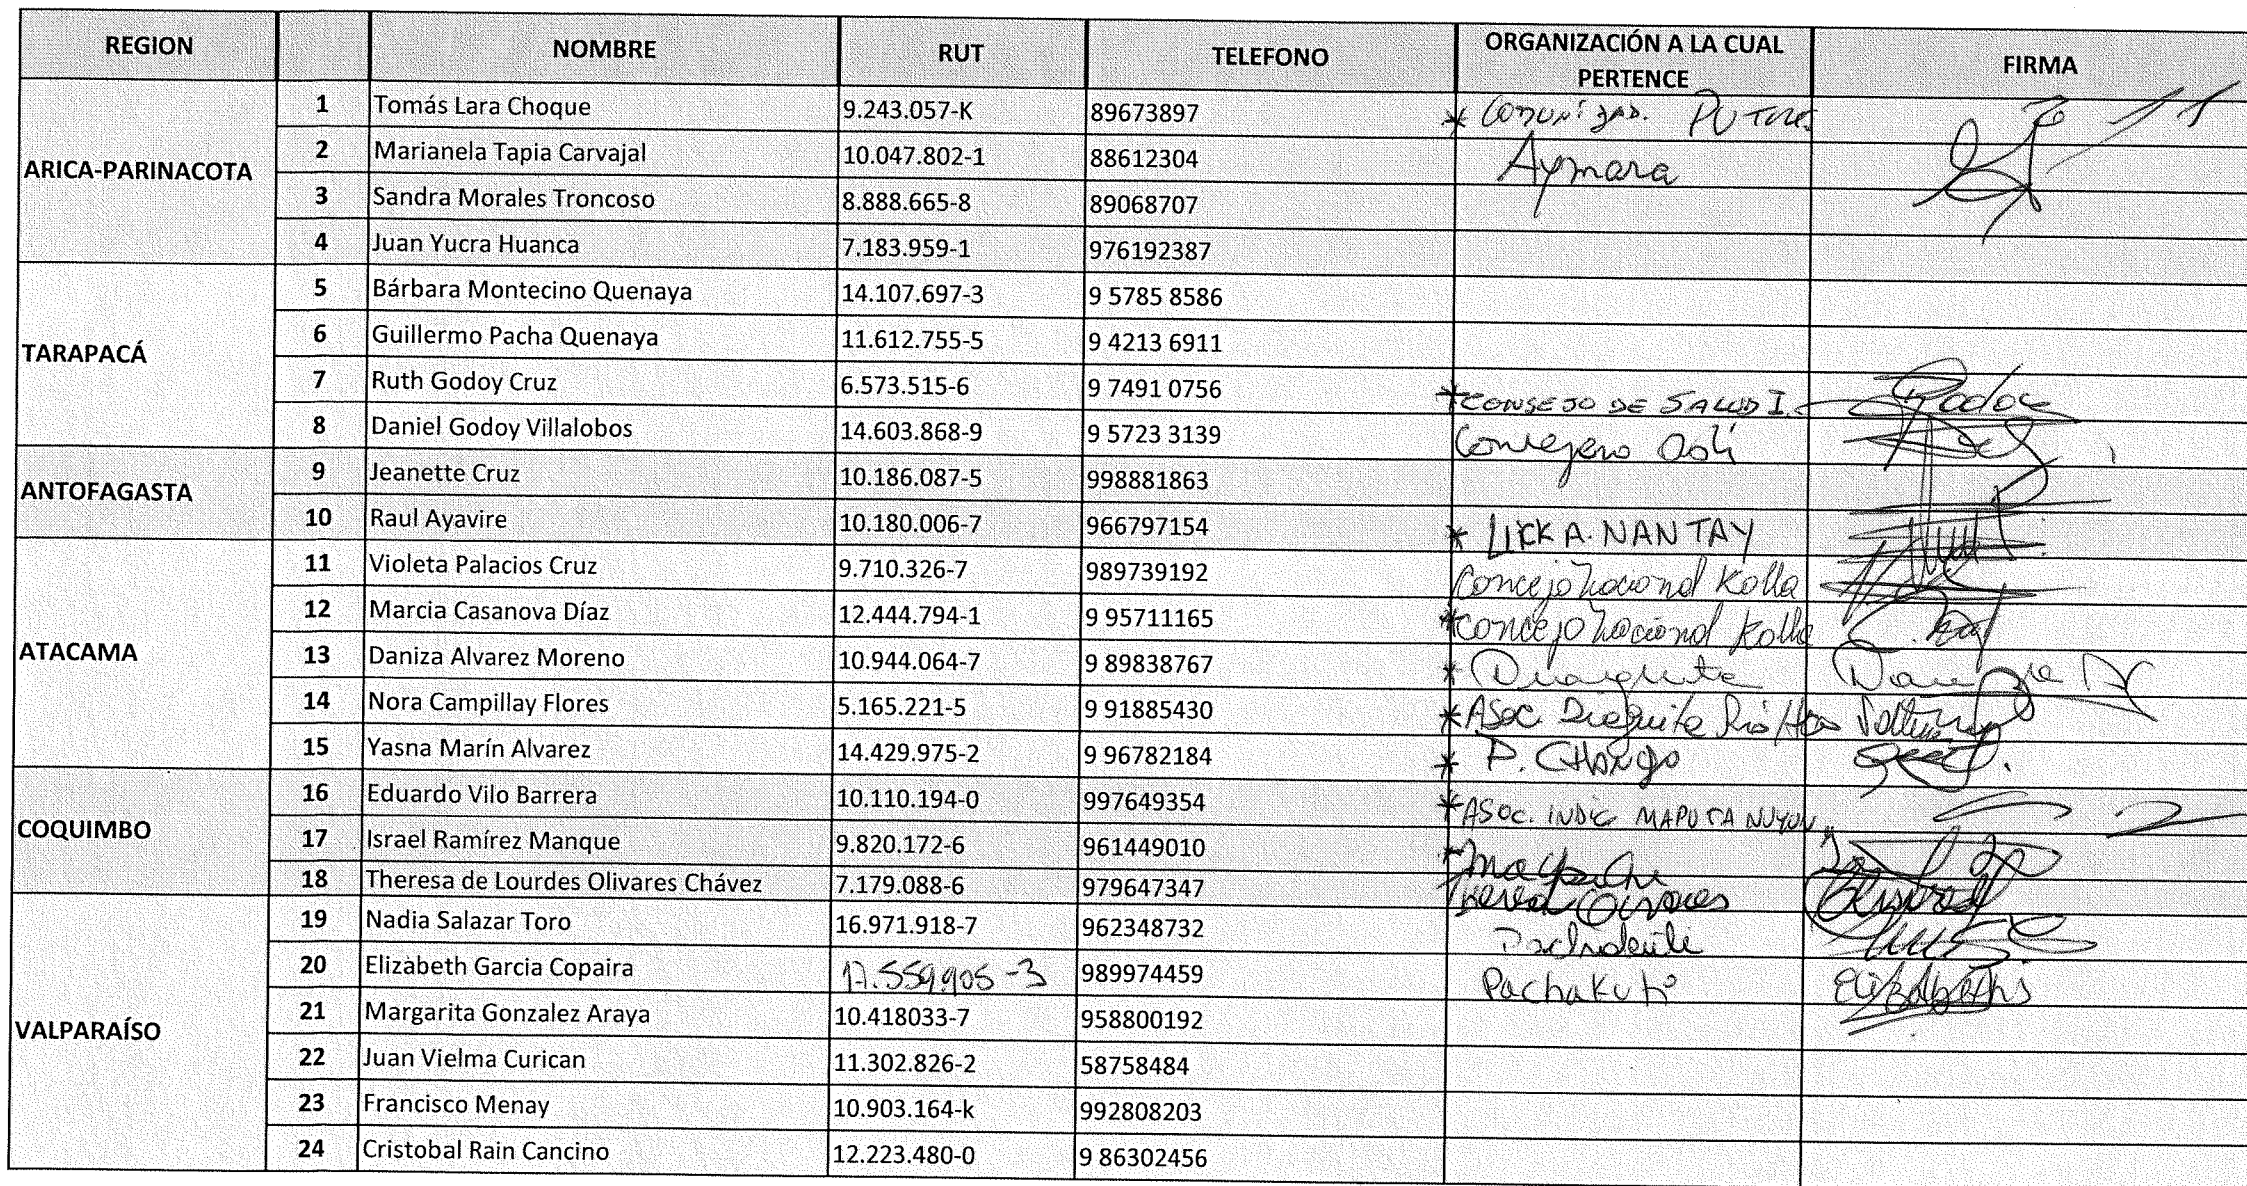 REGION NOMBRE RUT TELEFONO ORGANIZACIÓN A LA CUAL PERTENCE FIRMA
ARICA-PARINACOTA
1 Tomás Lara Choque 9.243.057-K 89673897 * Comunidad. PUTRE.
2 Marianela Tapia Carvajal 10.047.802-1 88612304 Aymara
3 Sandra Morales Troncoso 8.888.665-8 89068707
4 Juan Yucra Huanca 7.183.959-1 976192387
TARAPACÁ
5 Bárbara Montecino Quenaya 14.107.697-3 9 5785 8586
6 Guillermo Pacha Quenaya 11.612.755-5 9 4213 6911
7 Ruth Godoy Cruz 6.573.515-6 9 7491 0756 * CONSEJO DE SALUD I.
8 Daniel Godoy Villalobos 14.603.868-9 9 5723 3139 Consejero
ANTOFAGASTA
9 Jeanette Cruz 10.186.087-5 998881863
10 Raul Ayavire 10.180.006-7 966797154 * LICKA.NANTAY
ATACAMA
11 Violeta Palacios Cruz 9.710.326-7 989739192 Concejo nacional Kolla
12 Marcia Casanova Díaz 12.444.794-1 9 95711165 * Concejo nacional Kolla
13 Daniza Alvarez Moreno 10.944.064-7 9 89838767 * Diaguita
14 Nora Campillay Flores 5.165.221-5 9 91885430 * Asoc. Diaguita
15 Yasna Marín Alvarez 14.429.975-2 9 96782184 * P. Chango
COQUIMBO
16 Eduardo Vilo Barrera 10.110.194-0 997649354 * ASOC. INDIG MAPU TA NUYUN
17 Israel Ramírez Manque 9.820.172-6 961449010 * Mapuche
18 Theresa de Lourdes Olivares Chávez 7.179.088-6 979647347 Olivares
VALPARAÍSO
19 Nadia Salazar Toro 16.971.918-7 962348732
20 Elizabeth Garcia Copaira 17.559.905-3 989974459 Pachakuti
21 Margarita Gonzalez Araya 10.418033-7 958800192
22 Juan Vielma Curican 11.302.826-2 58758484
23 Francisco Menay 10.903.164-k 992808203
24 Cristobal Rain Cancino 12.223.480-0 9 86302456